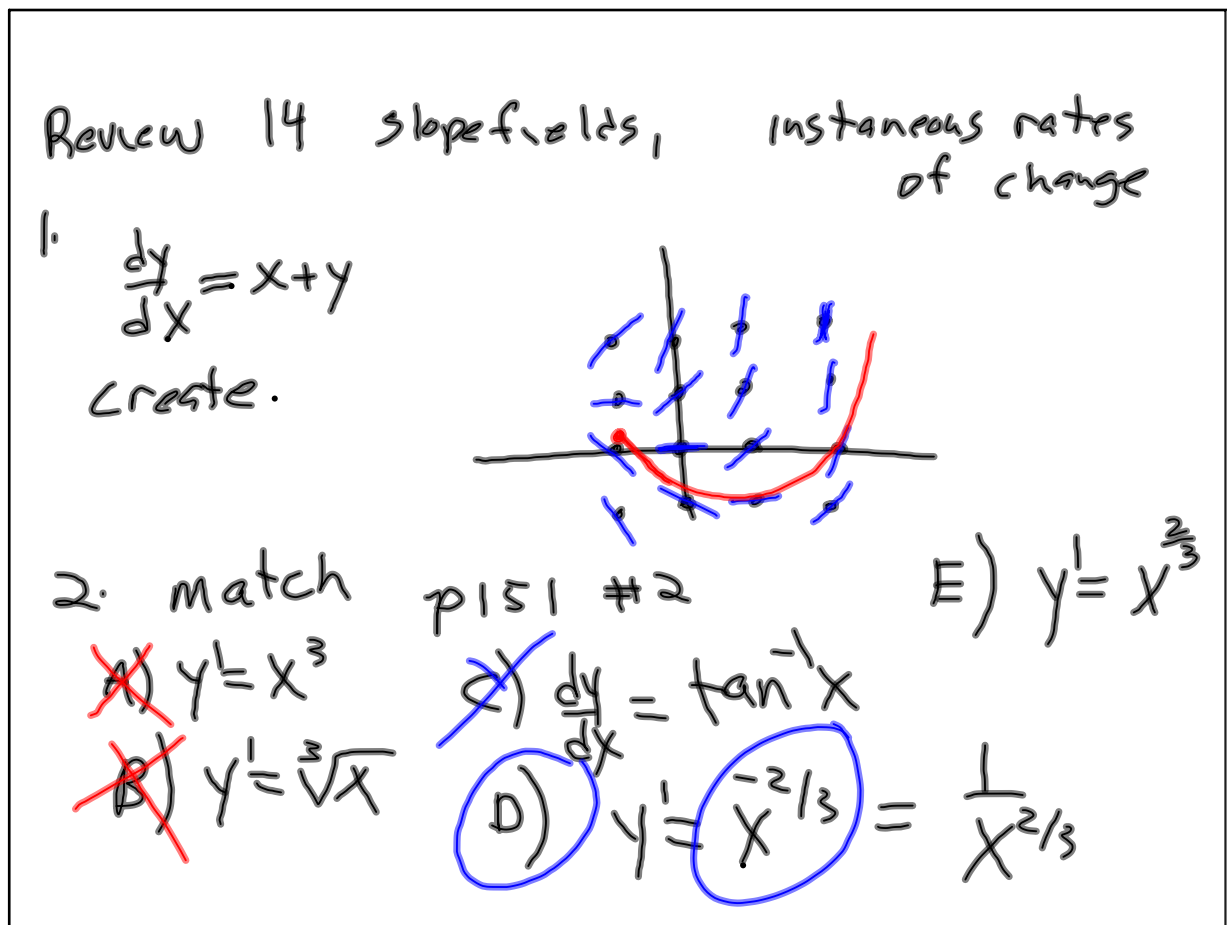 Review 14 slopefields, instaneous rates
of change
1.
dy/dx = x+y
create.
2. match p151 #2
E) y' = x^{2/3}
A) y' = x^3
C) dy/dx = tan^{-1}x
B) y' = ∛x
D) y' = x^{-2/3} = 1/x^{2/3}